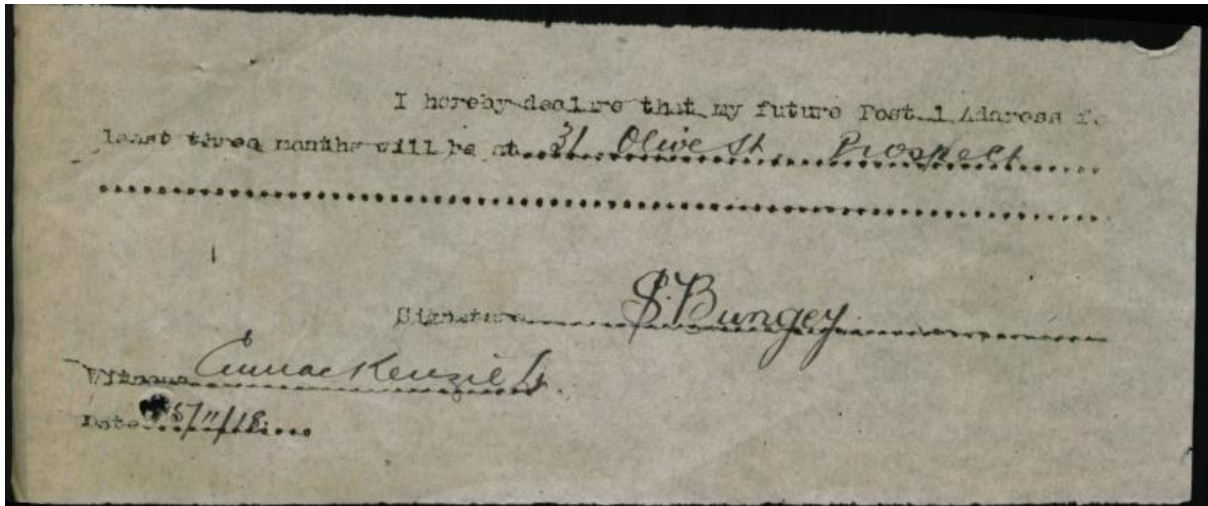 I hereby declare that my future Postal Address fo
least three months will be at 31 Olive St Prospect
Signature S. Bungey
Witness
Date 5/11/18